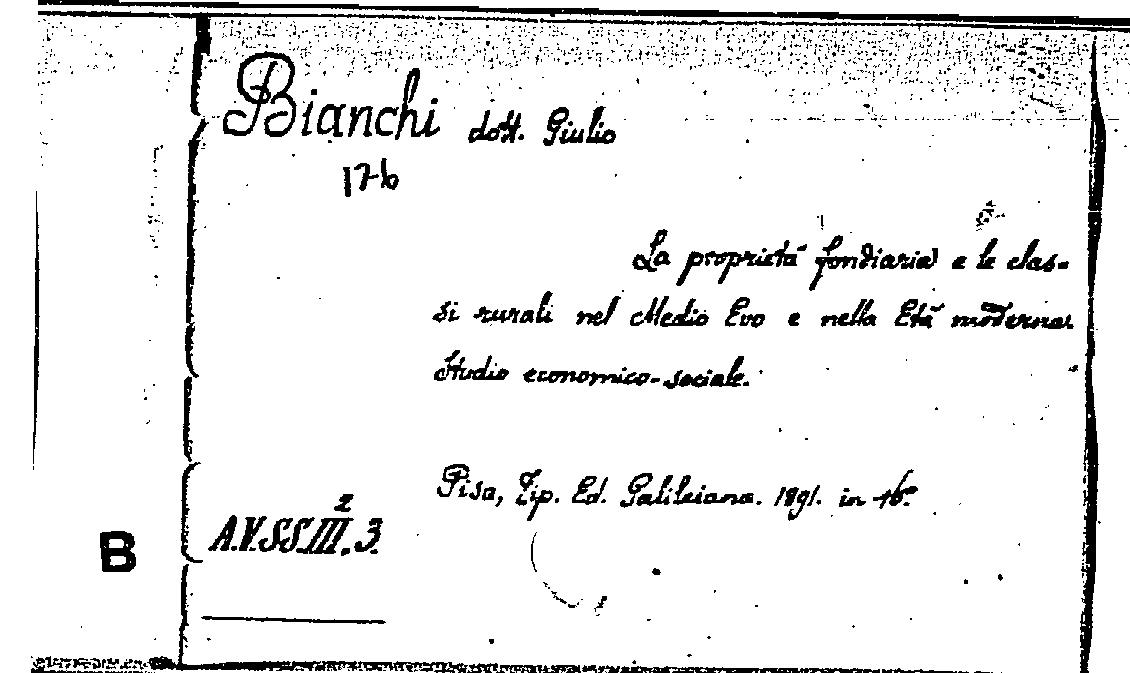 Bianchi dott. Giulio
176
La proprietà fondiaria e le clas-
si rurali nel Medio Evo e nella Età moderna
Studio economico-sociale.
Pisa, Tip. Ed. Galileiana. 1891. in 16º
2
A.V.SS.III.3.
B